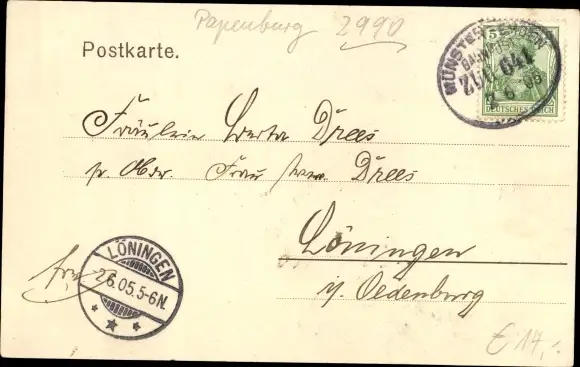 Papenburg 2990
Postkarte.
5
MÜNSTER EMDEN
BAHNPOST
ZUG 641
6 05
DEUTSCHES REICH
Fräulein Herta Drees
p. Adr. Frau Drees
Löningen
i/ Oldenburg
LÖNINGEN
2.6.05.5-6N.
frei
€ 14,-